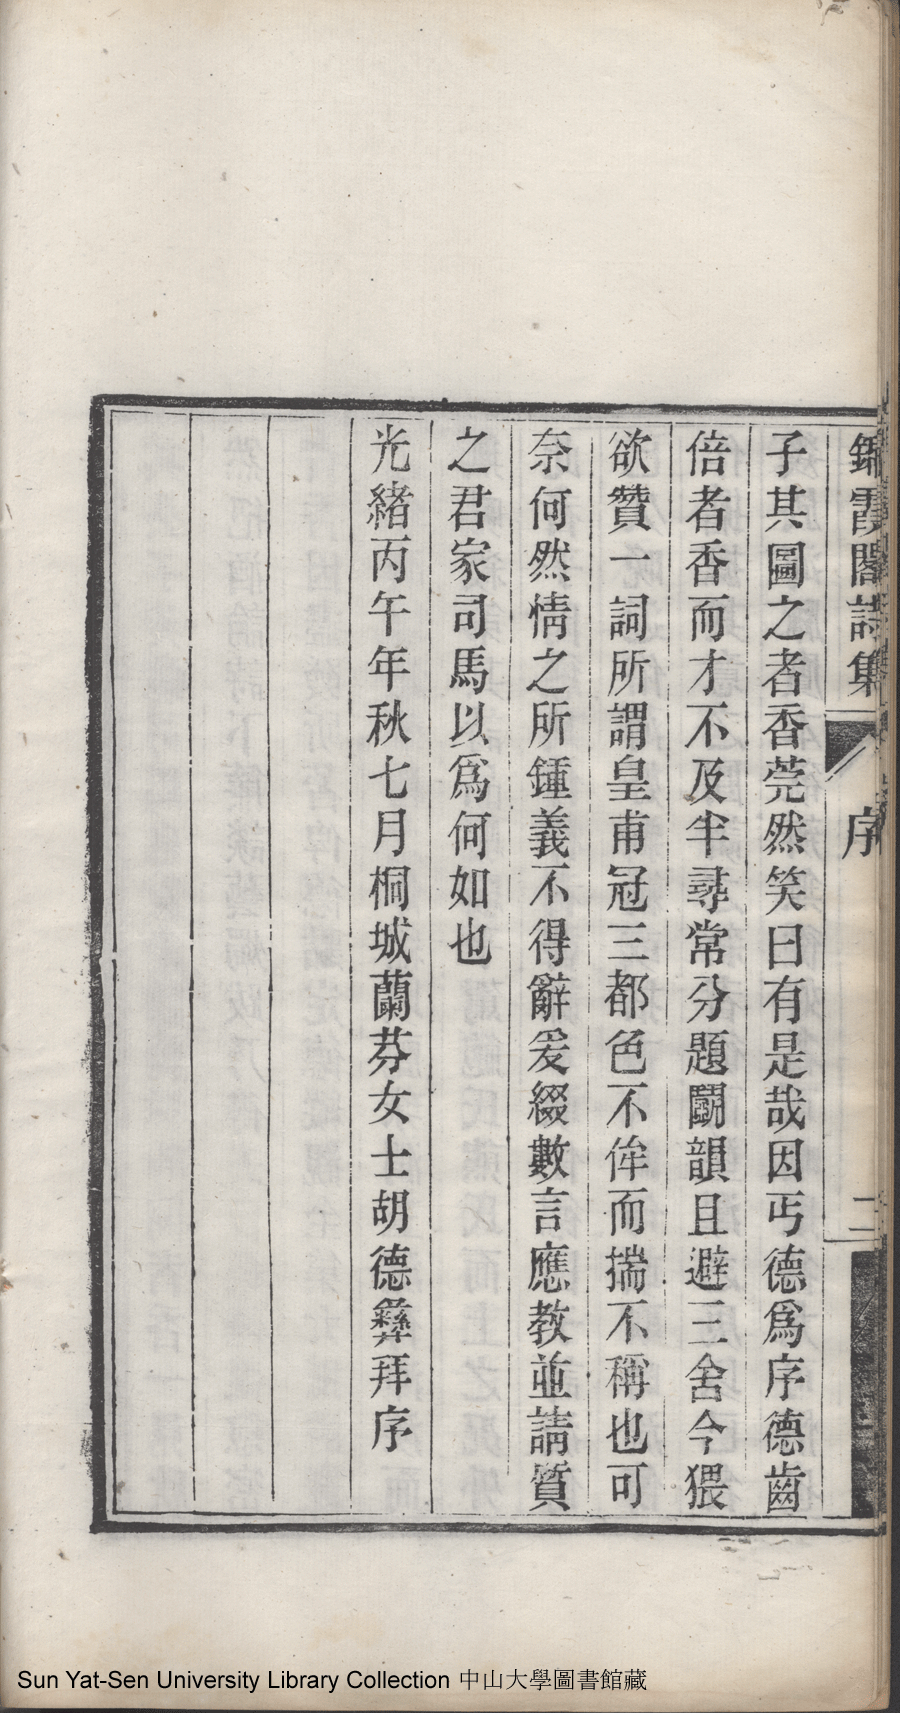 霞閣詩集 序 二
子其圖之者香莞然笑曰有是哉因丐德爲序德齒
倍者香而才不及半尋常分題鬭韻且避三舍今猥
欲贊一詞所謂皇甫冠三都色不侔而揣不稱也可
奈何然情之所鍾義不得辭爰綴數言應教並請質
之君家司馬以爲何如也
光緒丙午年秋七月桐城蘭芬女士胡德彝拜序
Sun Yat-Sen University Library Collection 中山大學圖書館藏